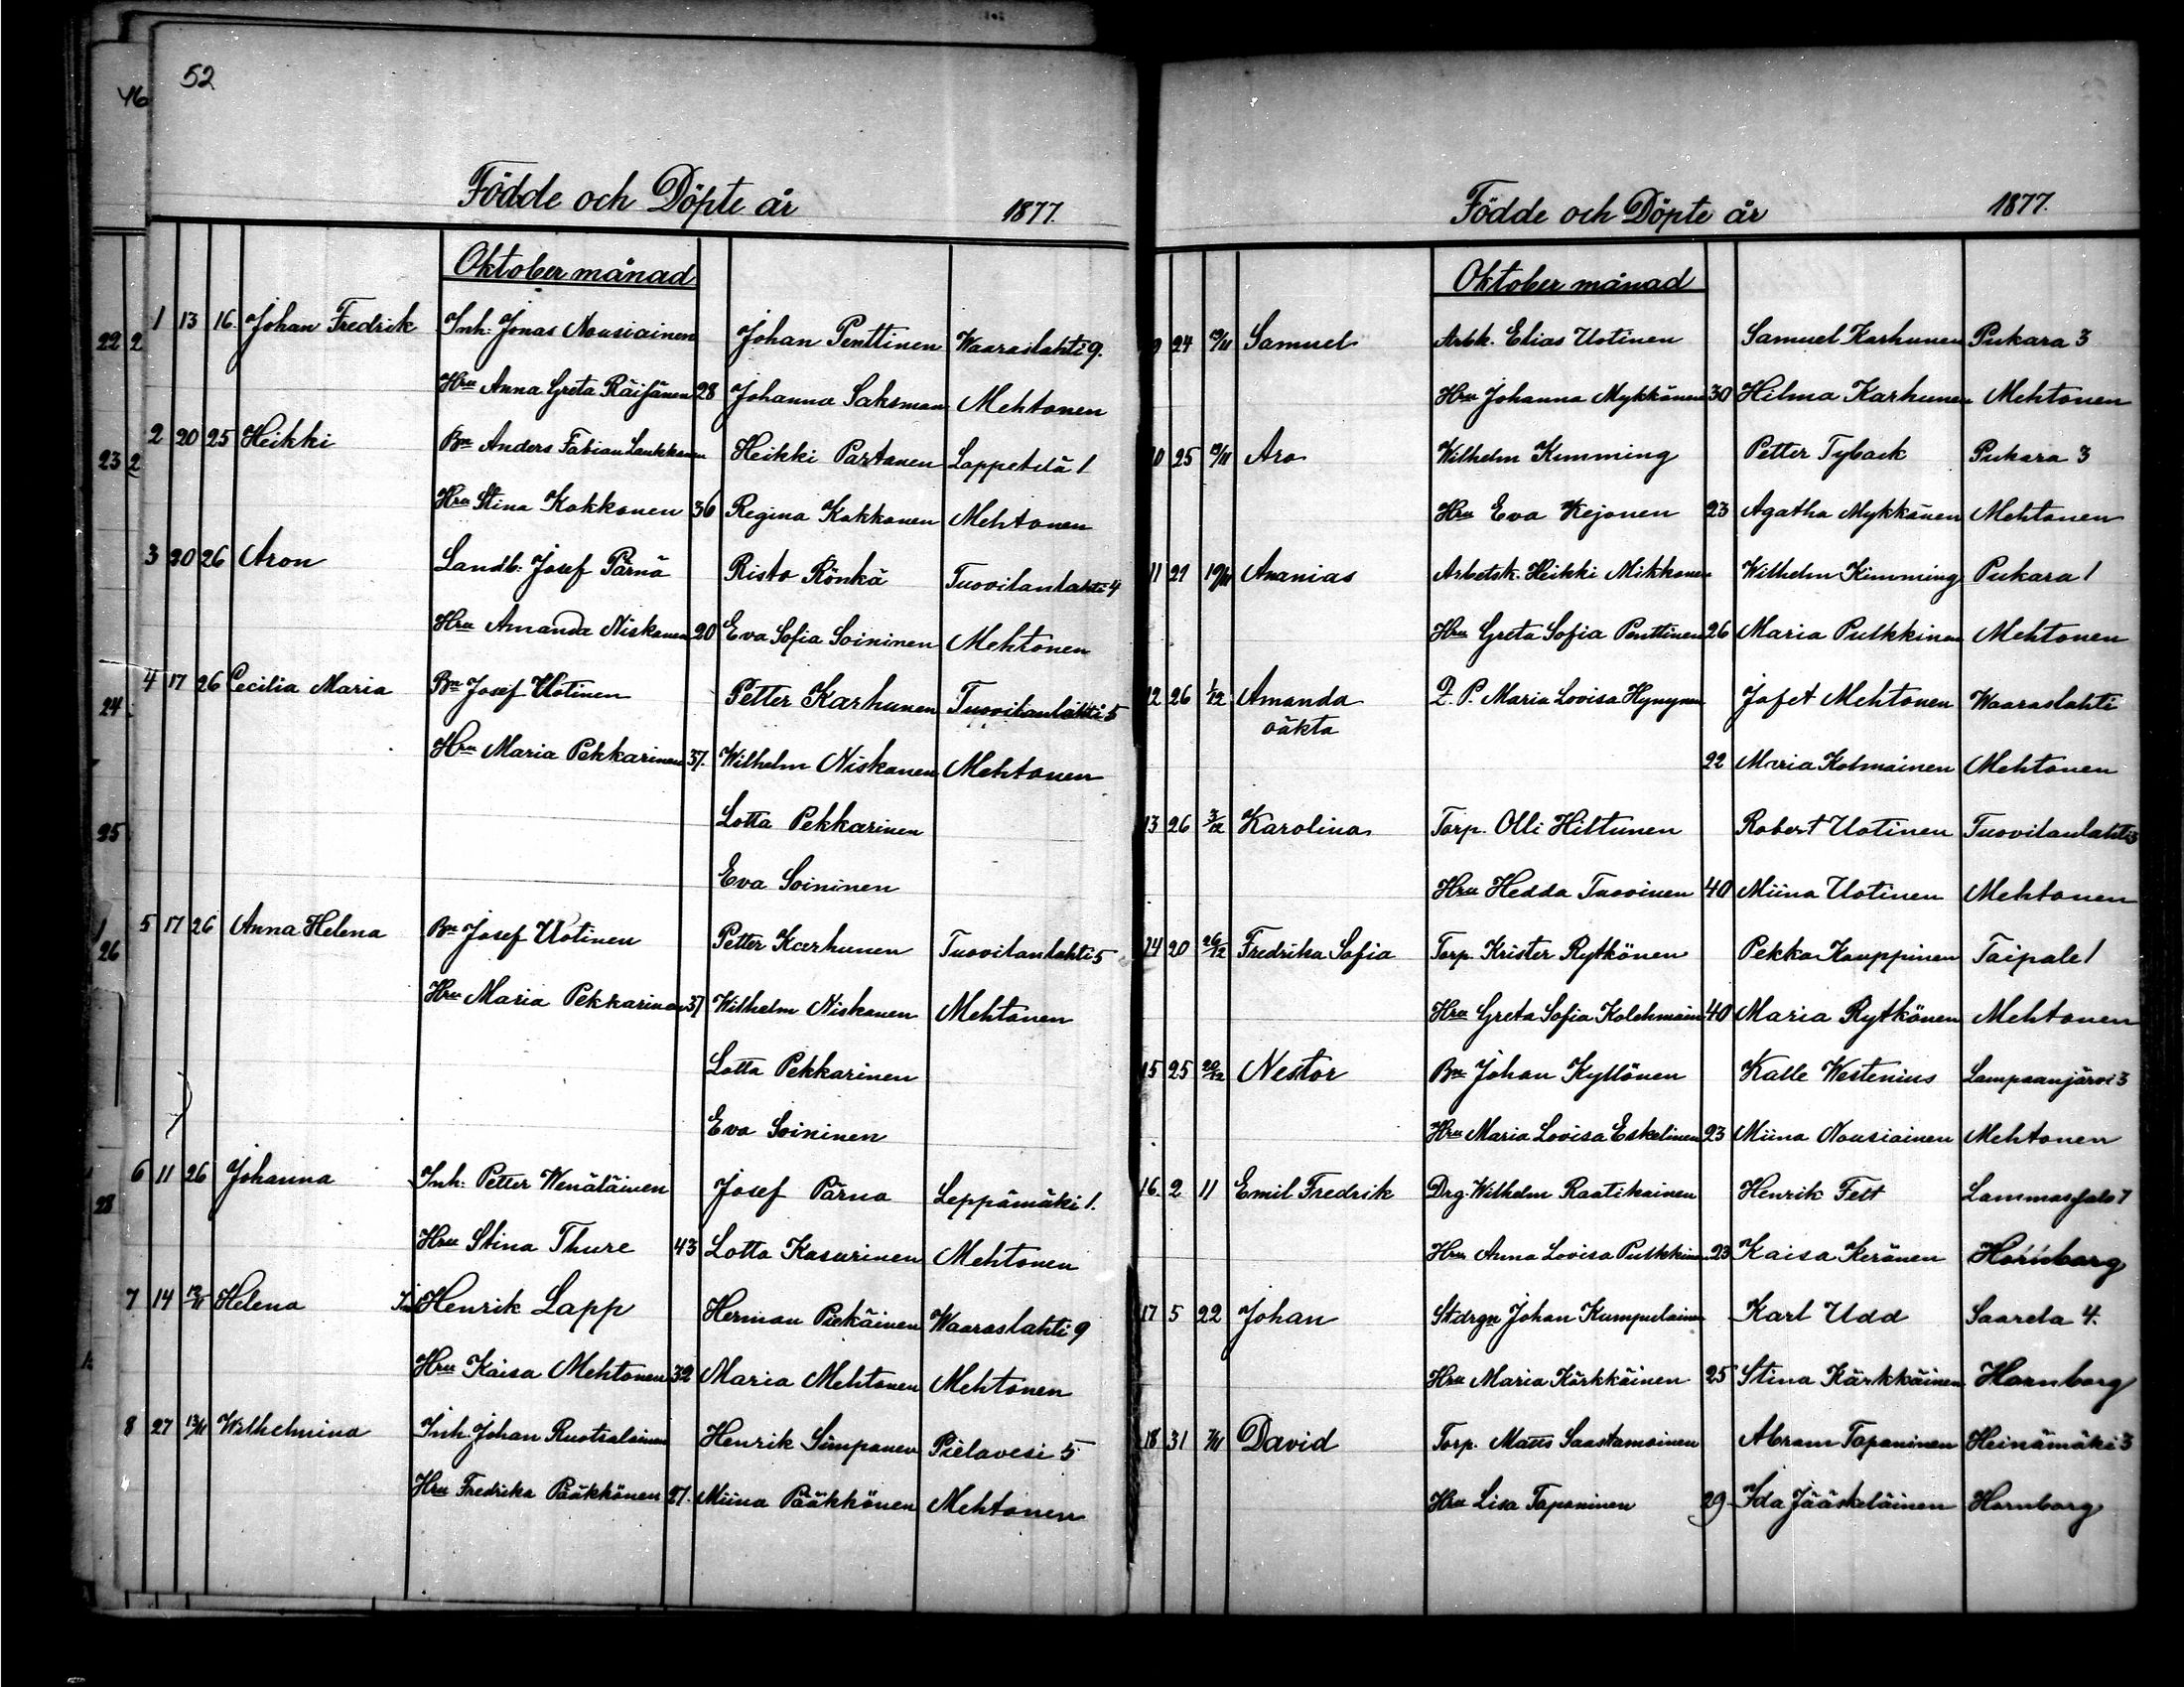 52
46
Födde och Döpte år 1877.
Oktober månad
1 13 16. Johan Fredrik Inh. Jonas Nousiainen Johan Penttinen Waaraslahti 9.
Hru Anna Greta Räisänen 28 Johanna Saksman Mehtonen
2 20 25 Heikki Bn Anders Fabian Laukkanen Heikki Partanen Lappetilä 1
Hru Stina Kokkonen 36 Regina Kokkonen Mehtonen
3 20 26 Aron Landb. Josef Pärnä Risto Rönkä Tuovilanlahti 4
Hru Amanda Niskanen 20 Eva Sofia Soininen Mehtonen
4 17 26 Cecilia Maria Bn Josef Uotinen Petter Karhunen Tuovilanlahti 5
Hru Maria Pekkarinen 37. Wilhelm Niskanen Mehtonen
Lotta Pekkarinen
Eva Soininen
5 17 26 Anna Helena Bn Josef Uotinen Petter Karhunen Tuovilanlahti 5
Hru Maria Pekkarinen 37 Wilhelm Niskanen Mehtonen
Lotta Pekkarinen
Eva Soininen
6 11 26 Johanna Inh. Petter Wenäläinen Josef Pärna Leppämäki 1.
Hru Stina Thure 43 Lotta Kasurinen Mehtonen
7 14 Helena Henrik Lapp Herman Waaraslahti 9
Hru Kaisa Mehtonen 32 Maria Mehtonen Mehtonen
8 27 13/11 Wilhelmina Inh. Johan Ruotsalainen Henrik Simpanen Pielavesi 5
Hru Fredrika Pääkkönen 27. Miina Pääkkönen Mehtonen
Födde och Döpte år 1877.
Oktober månad
9 24 Samuel Arbk. Elias Uotinen Samuel Karhunen Pukara 3
Hru Johanna Mykkänen 30 Hilma Karhunen Mehtonen
10 25 Aro Wilhelm Kimming Petter Tyback Pukara 3
Hru Eva Kejonen 23 Agatha Mykkänen Mehtonen
11 21 Ananias Arbetsk. Heikki Mikkonen Wilhelm Kimming Pukara 1
Hru Greta Sofia Penttinen 26 Maria Pulkkinen Mehtonen
12 26 1/12 Amanda Q. P. Maria Lovisa Hynynen Jafet Mehtonen Waaraslahti
oäkta
22 Maria Kolmainen Mehtonen
13 26 3/12 Karolina Torp. Olli Hiltunen Robert Uotinen Tuovilanlahti 3
Hru Hedda Tuovinen 40 Miina Uotinen Mehtonen
14 20 26/12 Fredrika Sofia Torp. Krister Rytkönen Pekka Kauppinen Taipale 1
Hru Greta Sofia Kolehmain 40 Maria Rytkönen Mehtonen
15 25 Nestor Bn Johan Kyllönen Kalle Westenius Lampaanjärvi 3
Hru Maria Lovisa Eskelinen 23 Miina Nousiainen Mehtonen
16. 2 11 Emil Fredrik Drg. Wilhelm Raatikainen Henrik Felt
Hru Anna Lovisa Pulkkinen 23 Kaisa Keränen Hornborg
17 5 22 Johan Stdrgn Johan Kumpulainen Karl Udd Saarela 4.
Hru Maria Kärkkäinen 25 Stina Kärkkäinen Hornborg
18 31 David Torp. Matts Saastamoinen Abram Tapaninen Heinämäki 3
Hru Lisa Tapaninen 29 Ida Jääskeläinen Hornborg